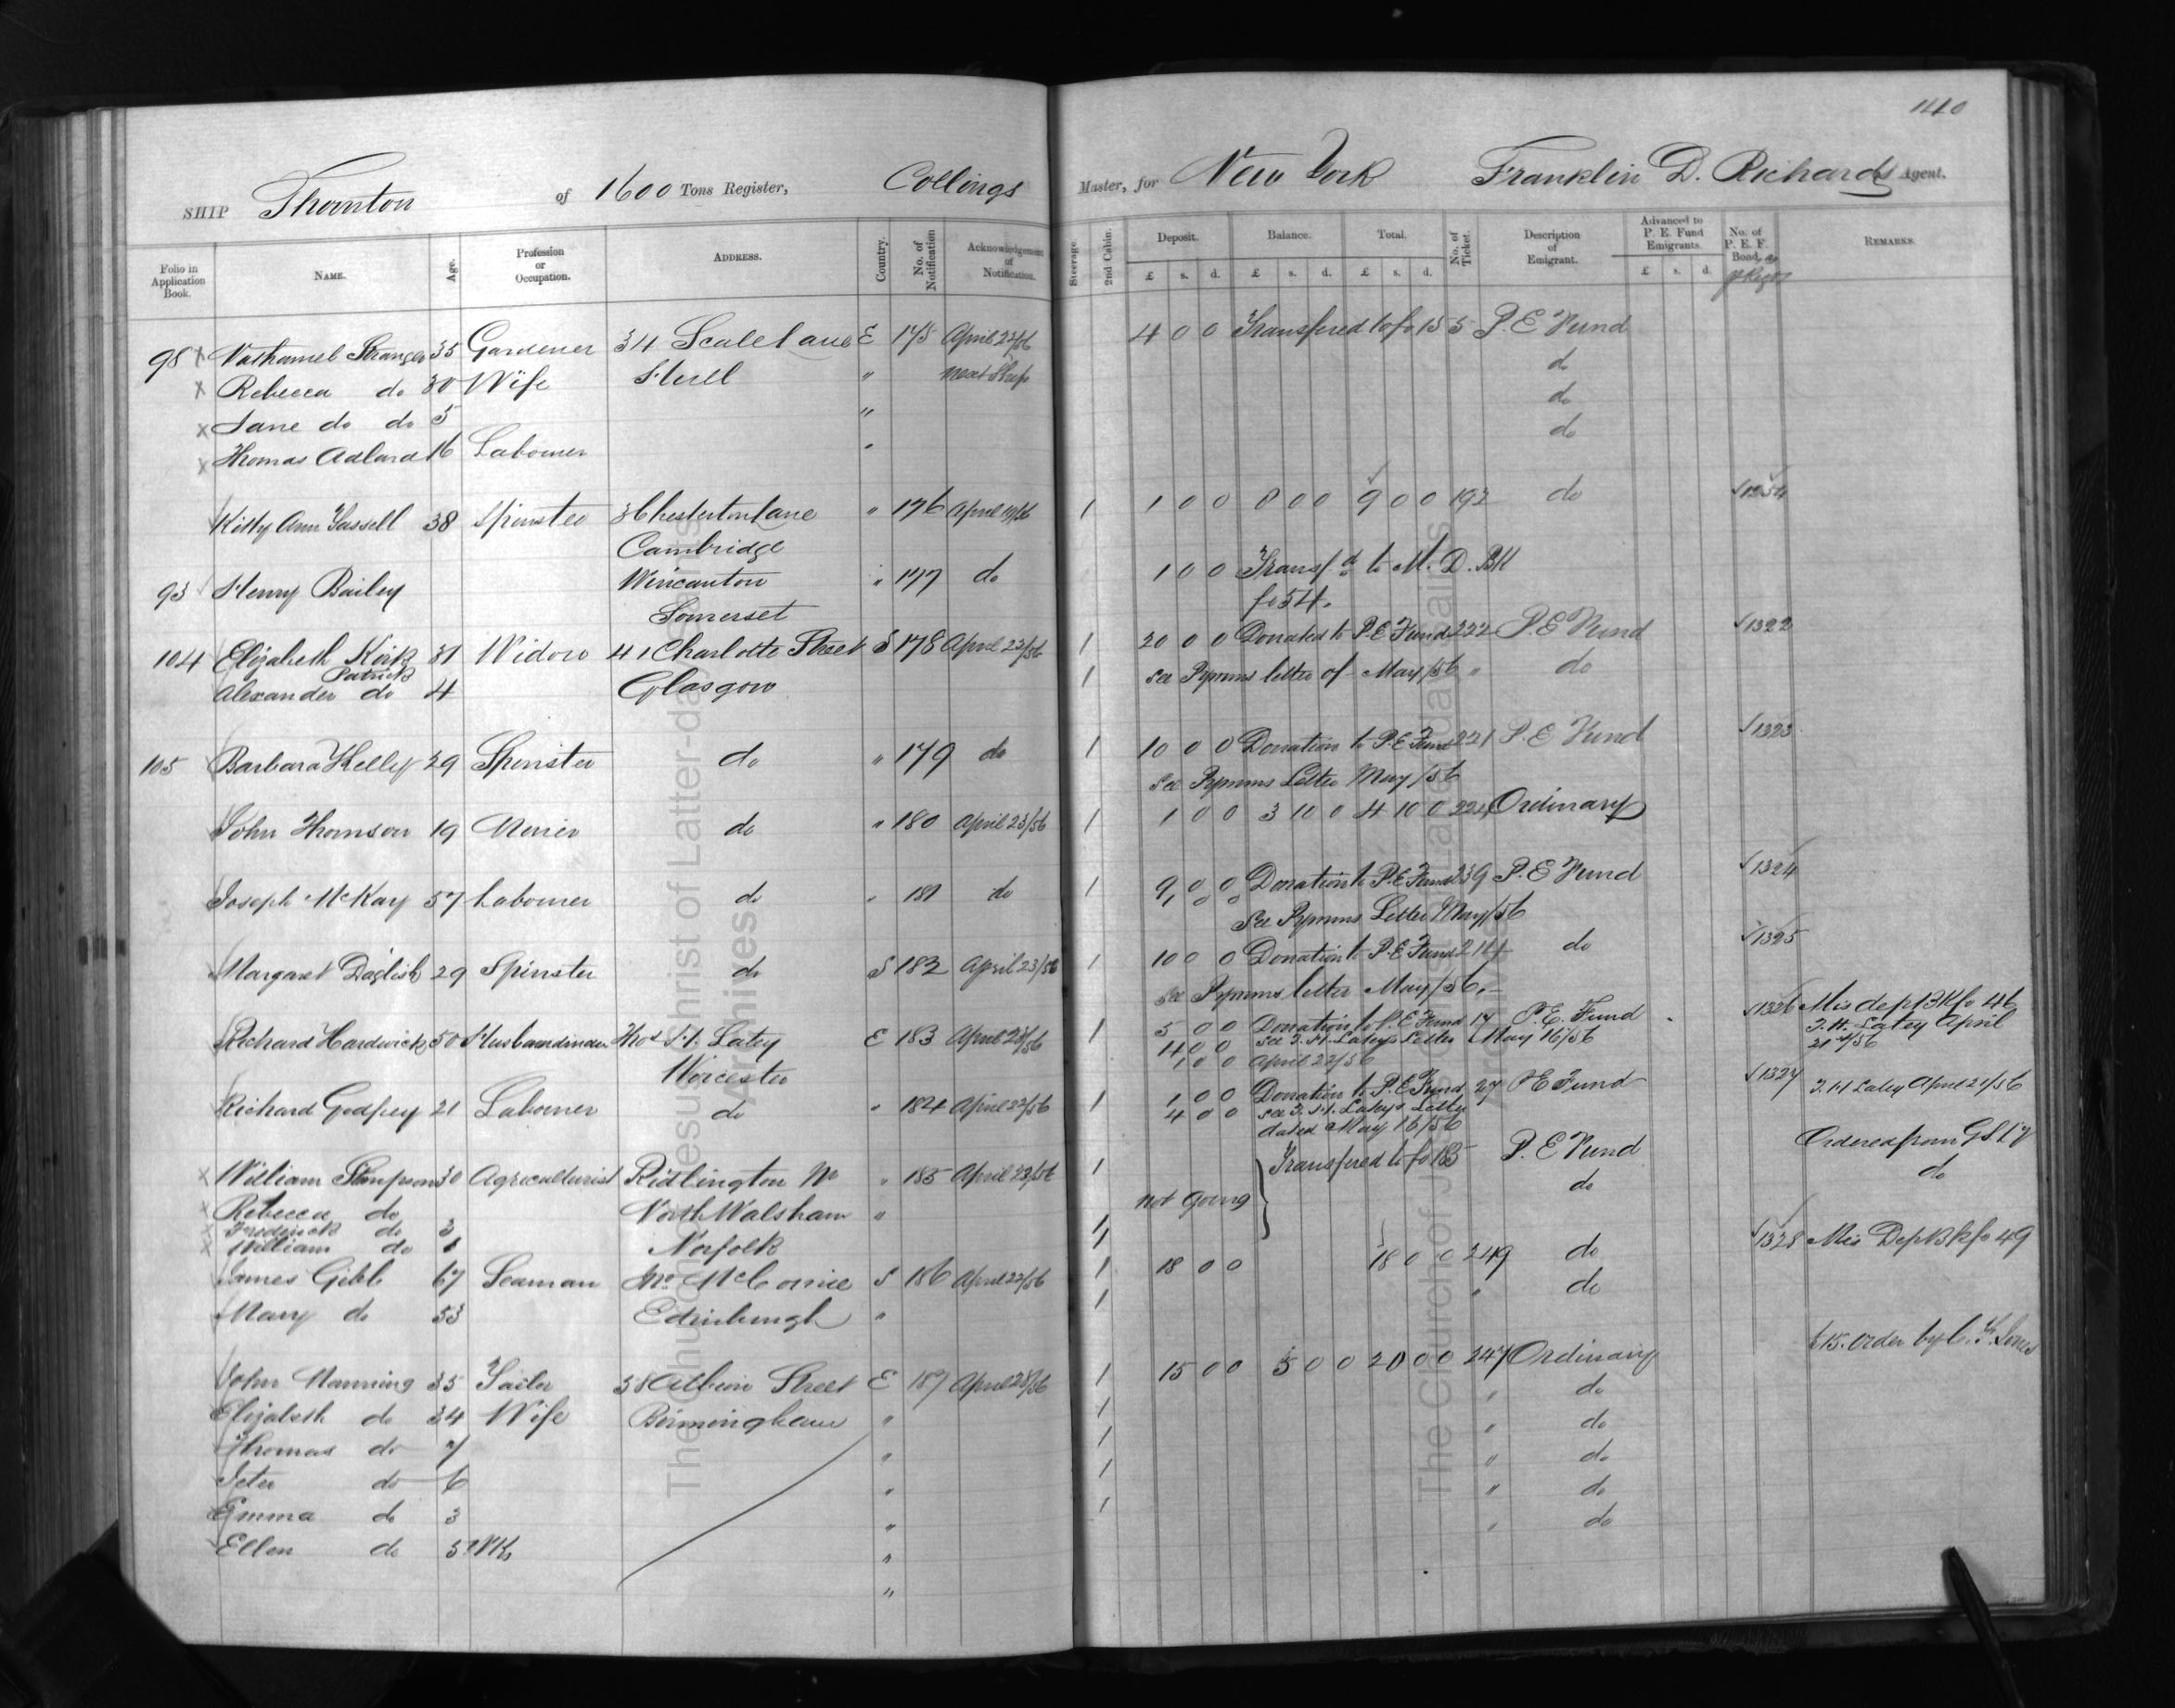 140
SHIP Thornton of 1600 Tons Register, Collings Master, for New York Franklin D. Richards Agent.
Folio in Application Book. NAME. Age. Profession or Occupation. ADDRESS. Country. No. of Notification Acknowledgement of Notification. Steerage 2nd Cabin. Deposit. Balance. Total. No. of Ticket. Description of Emigrant. Advanced to P. E. Fund Emigrants. No. of P. E. F. Bond. REMARKS.
£ s. d. £ s. d. £ s. d. £ s. d.
98 x Nathaniel Stranger 35 Gardener 34 Scale Lane E 175 April 22/56 4 0 0 Transfered to fo 155 P. E Fund
x Rebecca do 30 Wife Hull " Next Ship do
x Jane do do 5 " do
x Thomas Adlard 16 Labourer " do
Kitty Ann 38 Spinster 3 Chesterton Lane " 176 April 19/56 1 1 0 0 8 0 0 9 0 0 192 do
Cambridge
93 Henry Bailey Wincanton " 177 do 1 0 0 Transf.d to M. D. BK
Somerset fo 54.
104 Elizabeth Kirk 31 Widow 41 Charlotte Street S 178 April 22/56 1 20 0 0 Donated to P. E Fund 222 P. E Fund √1322
Patrick
Alexander do 4 Glasgow 1 See Pymms letter of May/56 " do
105 Barbara Kelly 29 Spinster do " 179 do 1 10 0 0 Donation to P. E Fund 221 P. E Fund √1323
See Pymms Letter May/56
John Thomson 19 Miner do " 180 April 23/56 1 1 0 0 3 10 0 4 10 0 224 Ordinary
Joseph McKay 57 Labourer do " 181 do 1 9 0 0 Donation to P. E Fund 239 P. E Fund √1324
See Pymms Letter May/56
Margaret Daglish 29 Spinster do S 182 April 23/56 1 10 0 0 Donation to P. E Fund do √1325
See Pymms letter May/56.
Richard Hardwick 50 Husbandman Thos H. Latey E 183 April 1 5 0 0 Donation to P. E Fund 17 P. E. Fund √1326 Mis dep BK fo 46
4 0 0 See T. H. Lateys Letter May 16/56 T. H. Latey April
Worcester 1 0 0 April 22/56 21st/56
Richard Godfrey 21 Labourer do " 184 April 22/56 1 1 0 0 Donation to P. E Fund 27 P E Fund √1327 T. H Latey April 21/56
4 0 0 See T. H. Lateys Letter
dated May 16/56
x William Simpson 30 Agriculturist Ridlington Nr " 185 April 23/56 1 Transfered to fo P. E Fund Ordered from G S L
x Rebecca do North Walsham " not Going do do
x Frederick do 3 Norfolk 1
x William do 1 1
James Gibb 67 Seaman S 186 April 22/56 1 18 0 0 18 0 0 249 do √1328 Mis Dep BK fo 49
Mary do 53 Edinburgh " 1 " do
John Manning 35 Tailor 38 Albion Street E 187 April 1 15 0 0 5 0 0 20 0 0 247 Ordinary £15. order by
Elizabeth do 34 Wife Birmingham " 1 " do
Thomas do 7 " 1 " do
Peter do 6 " 1 " do
Emma do 3 " 1 " do
Ellen do " " do
"
The Church of Jesus Christ of Latter-day Saints
Archives
The Church of Jesus Christ of Latter-day Saints
Archives